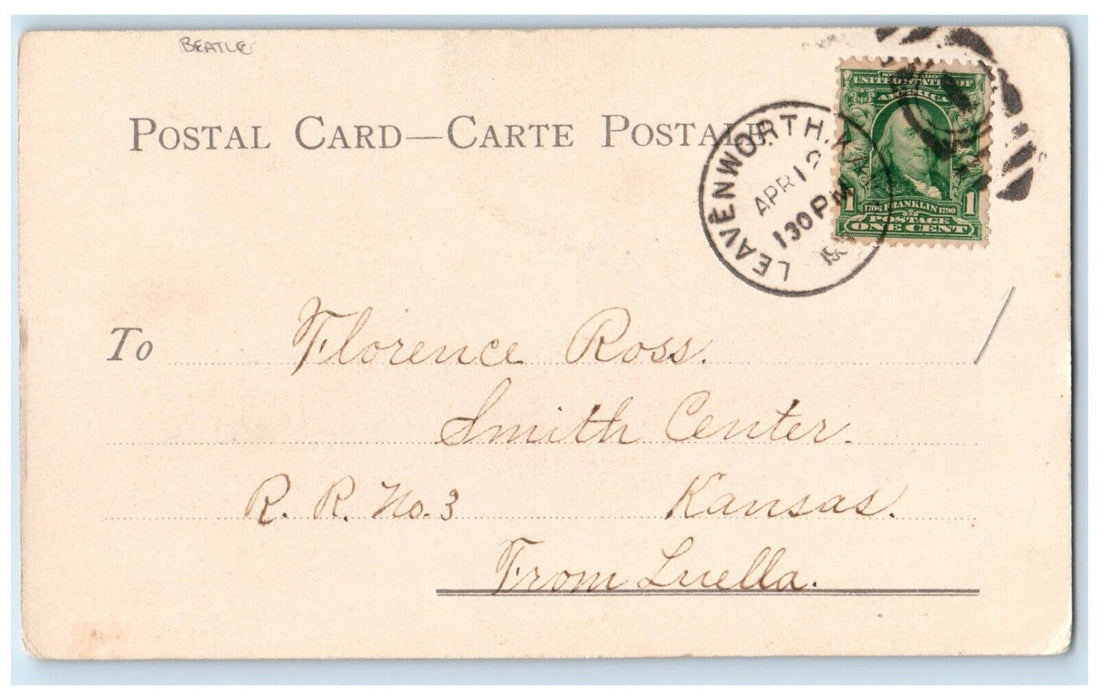 BEATLE
POSTAL CARD—CARTE POSTALE
UNITED STATES OF
AMERICA
1 1706 FRANKLIN 1790 1
POSTAGE
ONE CENT
LEAVENWORTH,
APR 12
130 PM
To Florence Ross.
Smith Center.
R. R. No. 3 Kansas.
From Luella.